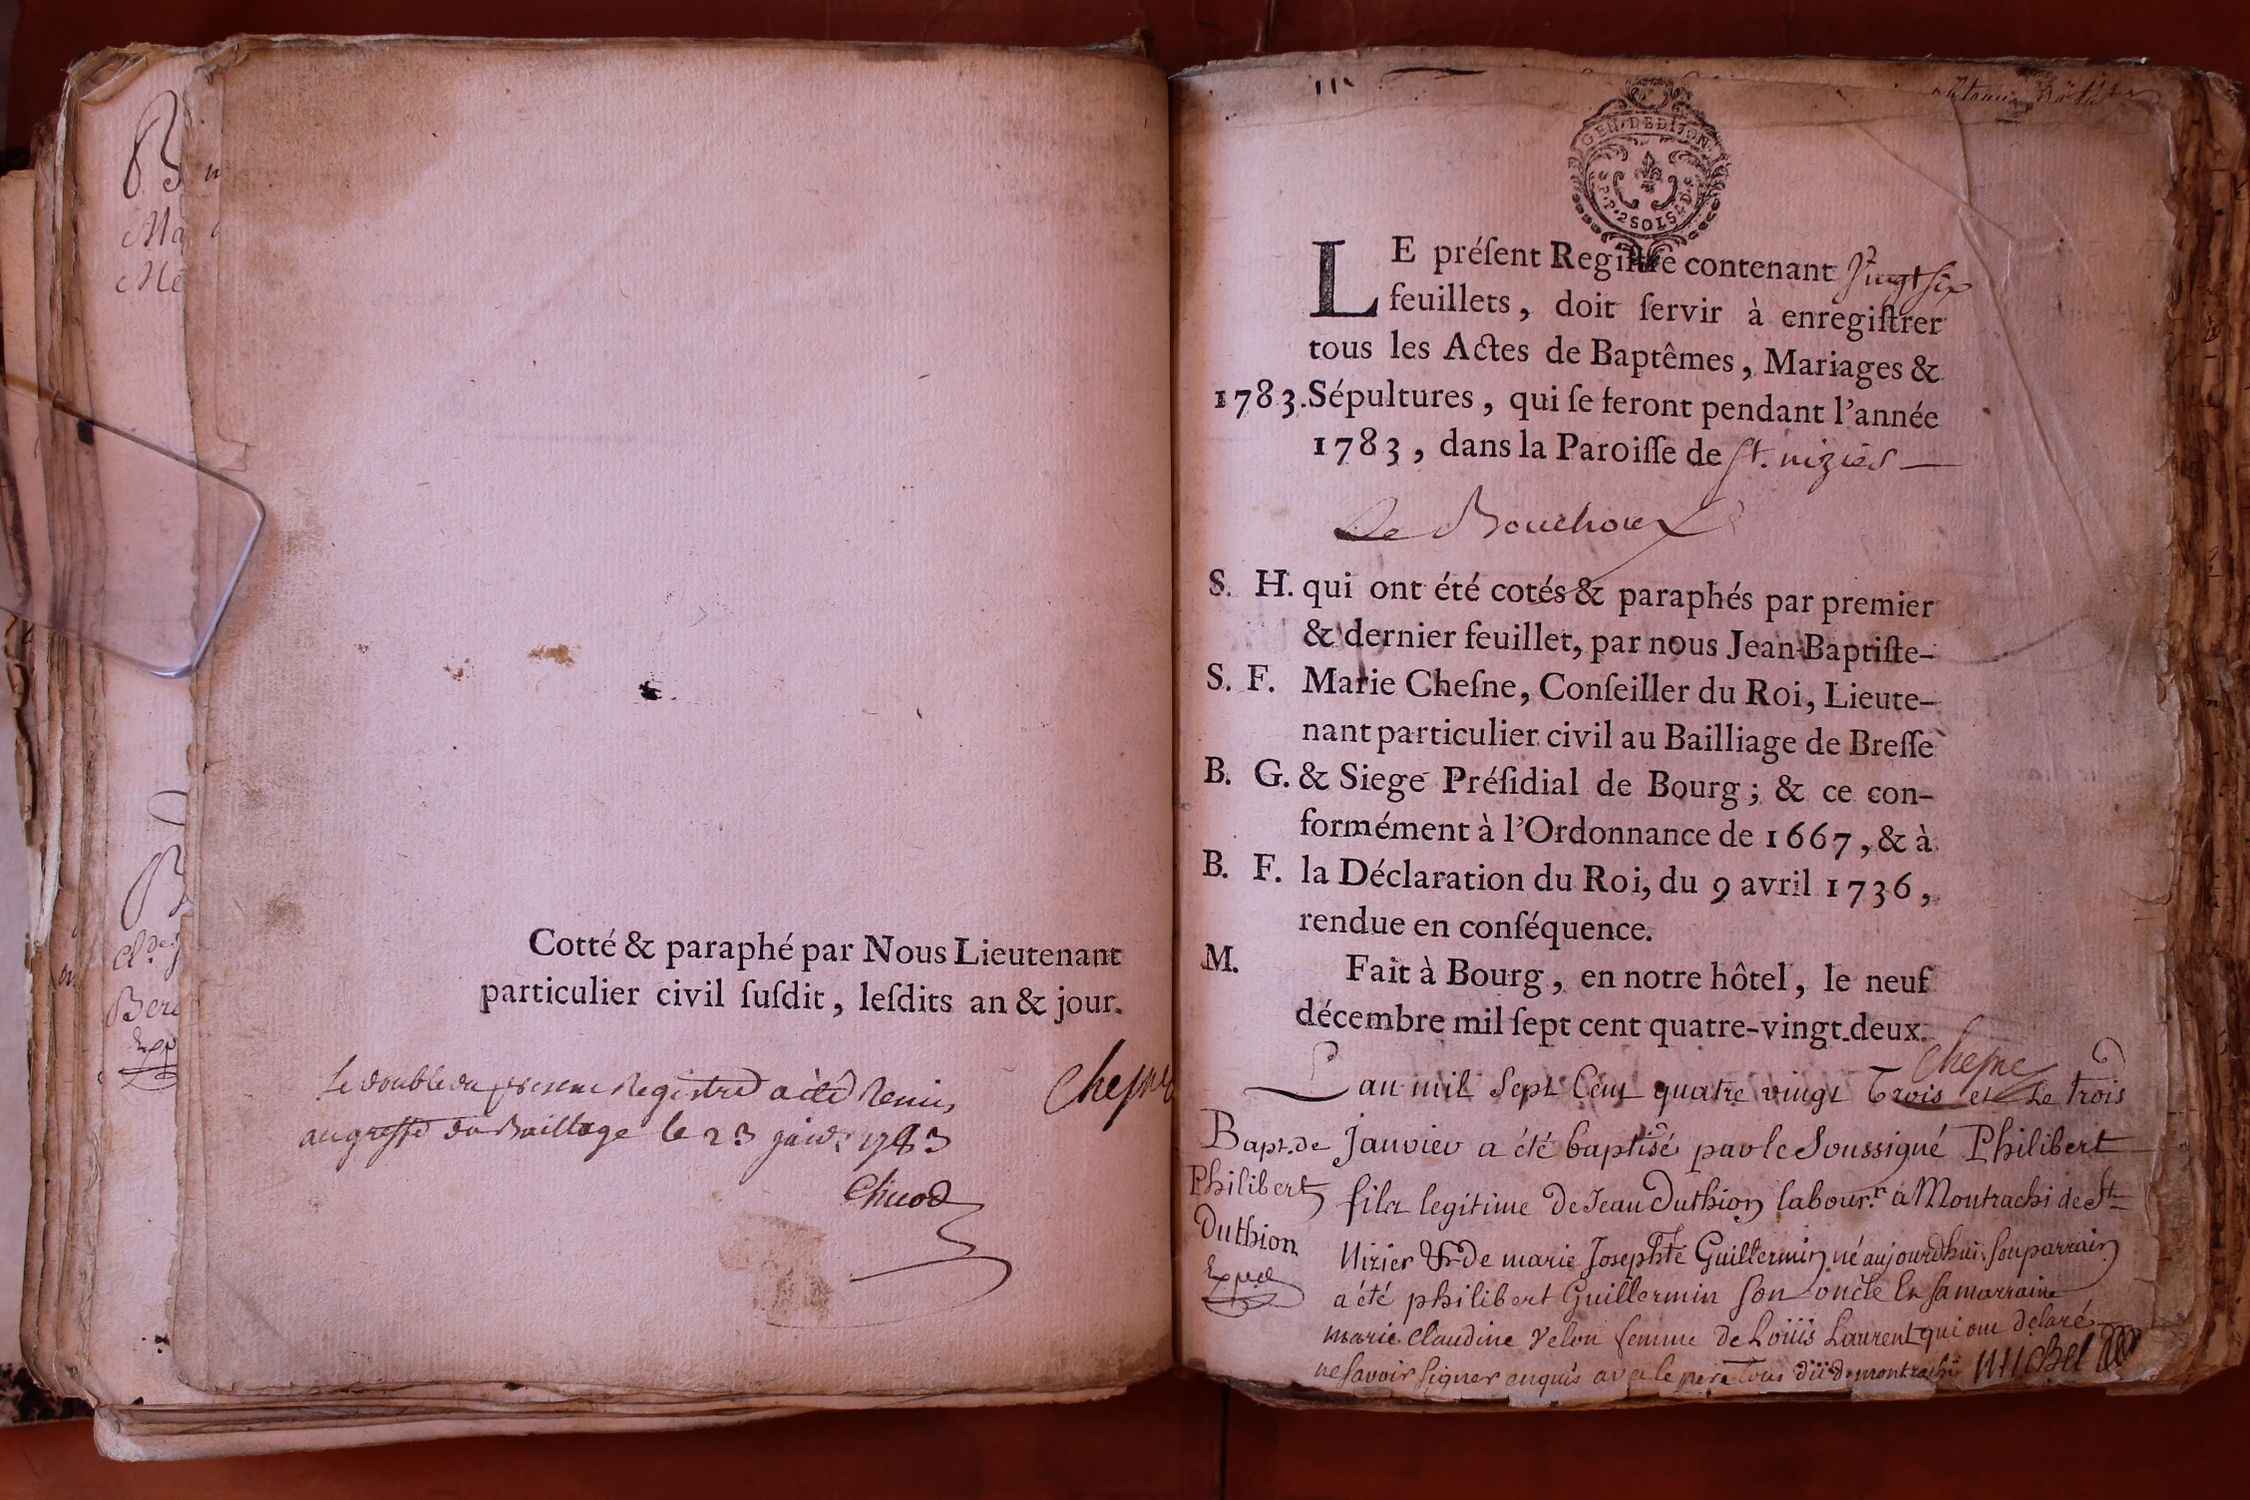 Cotté & paraphé par Nous Lieutenant
particulier civil ſuſdit, leſdits an & jour.
Chesne
Le double du present Registre a été Remis
au greffe du Bailliage le 23 janv. 1783
GEN. DE DIJON
2 SOLS
LE préſent Regiſtre contenant Vingt six
feuillets, doit ſervir à enregiſtrer
tous les Actes de Baptêmes, Mariages &
1783. Sépultures, qui ſe feront pendant l'année
1783, dans la Paroiſſe de St. nizier
Le Bouchoux
S. H. qui ont été cotés & paraphés par premier
& dernier feuillet, par nous Jean-Baptiſte-
S. F. Marie Cheſne, Conſeiller du Roi, Lieute-
nant particulier civil au Bailliage de Breſſe
B. G. & Siege Préſidial de Bourg; & ce con-
formément à l'Ordonnance de 1667, & à
B. F. la Déclaration du Roi, du 9 avril 1736,
rendue en conſéquence.
M. Fait à Bourg, en notre hôtel, le neuf
décembre mil ſept cent quatre-vingt-deux.
Chesne
L'an mil Sept Cent quatre vingt Trois et Le trois
Bapt. de
Philibert
Duthion
Exped
Janvier a été baptisé par le Soussigné Philibert
fils legitime De Jean Duthion labour.r à Montrachi de St
Nizier & De marie Josephte Guillermin né aujourdhui. Son parrain
a été philibert Guillermin Son oncle Et Sa marraine
marie Claudine Velon femme de Loüis Laurent qui ont Declaré
ne savoir signer enquis avec le pere Tous dud. montrachi